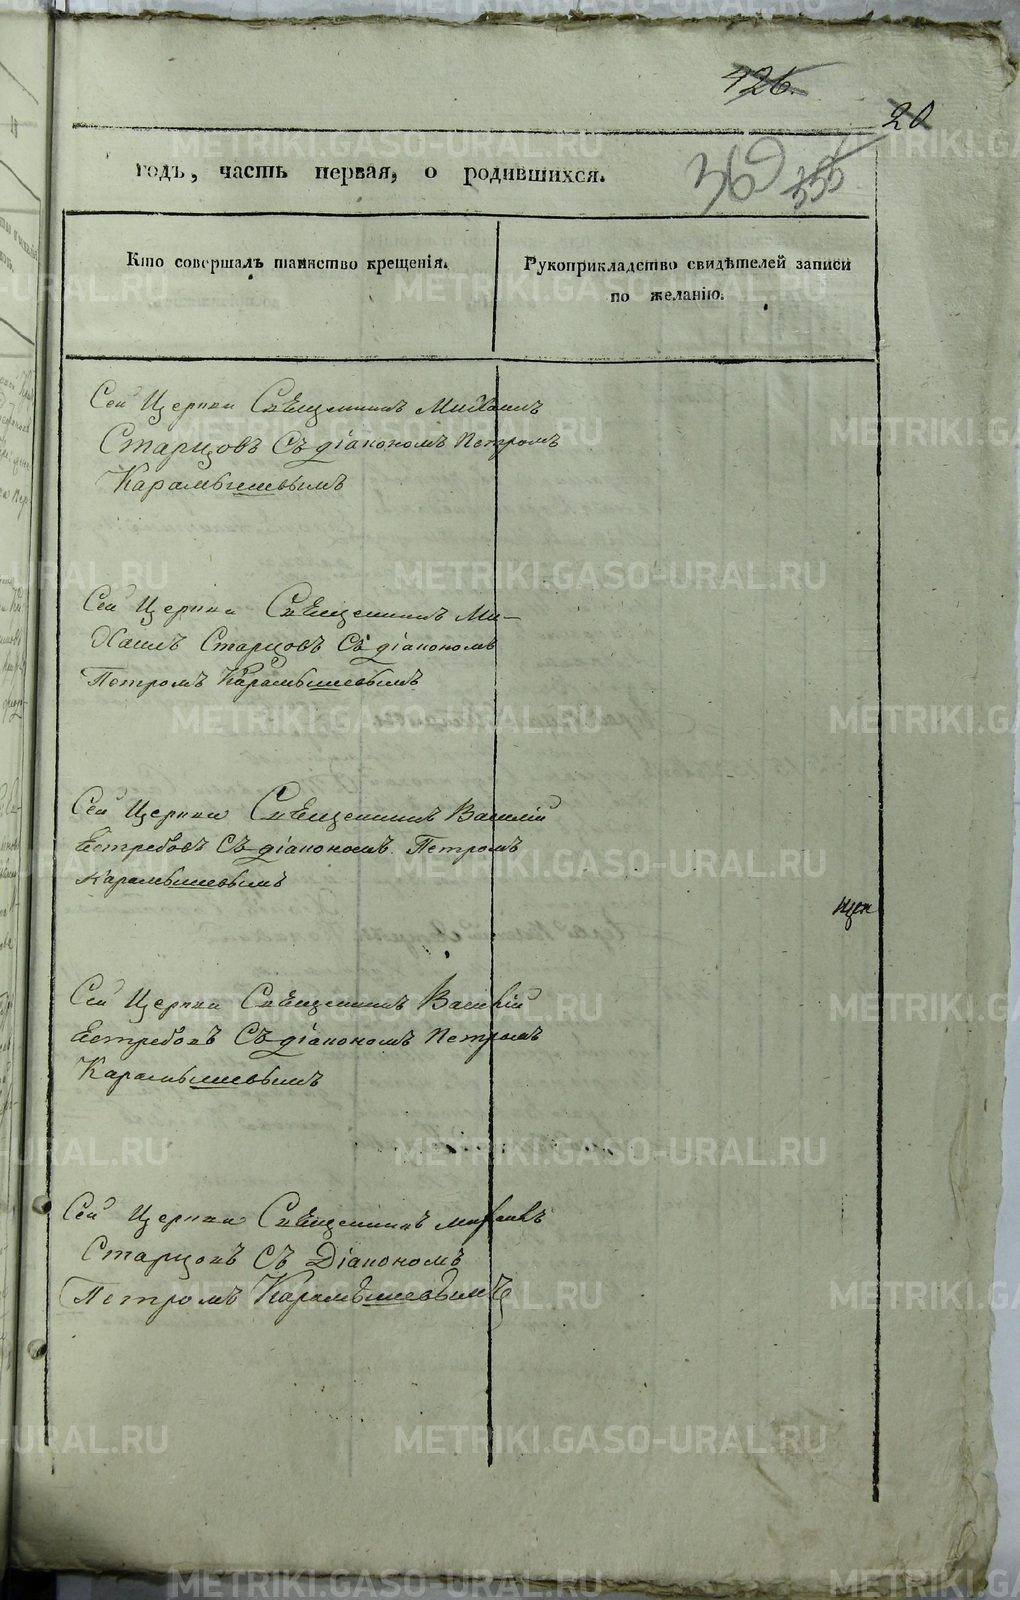 426.
20
369 355
годъ, часть первая, о родившихся.
Кто совершалъ таинство крещенія.
Рукоприкладство свидѣтелей записи
по желанію.
Сей Церкви Священникъ Михаилъ
Старцовъ съ діакономъ Петромъ
Карамышевымъ
Сей Церкви Священникъ Ми-
хаилъ Старцовъ съ діакономъ
Петромъ Карамышевымъ
Сей Церкви Священникъ Василій
Ястребовъ съ діакономъ Петромъ
Карамышевымъ
Сей Церкви Священникъ Василій
Ястребовъ съ діакономъ Петромъ
Карамышевымъ
Сей Церкви Священникъ Михаилъ
Старцовъ съ Діакономъ
Петромъ Карамышевымъ
METRIKI.GASO-URAL.RU